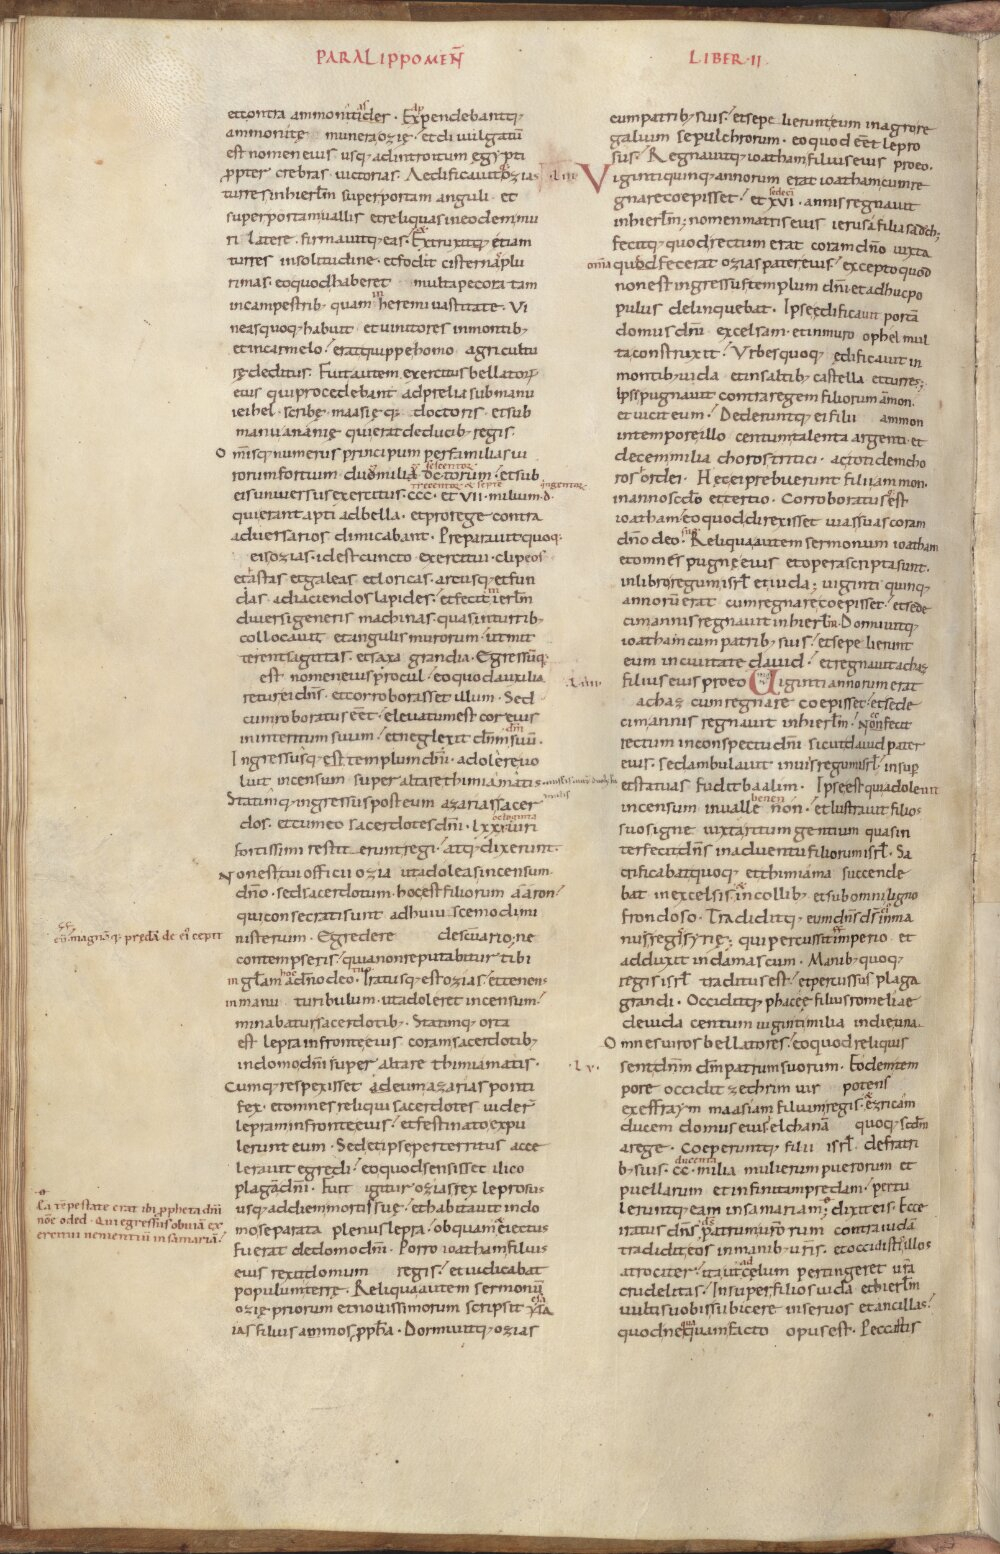 PARALIPPOMEÑ
LIBER·II
et contra ammonitides. Expendebantq;
ammonitę munera ozię. et diuulgatū
est nomen eius usq; ad introitum ęgypti
ꝓpter crebras uictorias. Aedificauitq; ozias
turres in hierłm super portam anguli. et
super portam uallis et reliquas in eodem mu
ri latere. firmauitq; eas. Extruxitq; etiam
turres in solitudine. et fodit cisternas plu
rimas. eo quod haberet multa pecora tam
in campestrib; quam in heremi uastitate. Vi
neas quoq; habuit et uinitores in montib;
et in carmelo. erat quippe homo agricultu
rę deditus. Fuit autem exercitus bellatorꝝ
eius qui procedebant ad prelia sub manu
ieihel scribę. maasięq; doctoris. et sub
manu ananię qui erat de ducib; regis.
Omnisq; numerus principum per familias ui
rorum fortium duo milia dc·torum. et sub
eis uniuersus exercitus. ccc. et VII. milium. d.
qui erant apti ad bella. et pro rege contra
aduersarios dimicabant. Preparauit quoq;
eis ozias. id est cuncto exercitui. clipeos
et astas et galeas et loricas. arcusq; et fun
das ad iaciendos lapides. et fecit in ierłm
diuersi generis machinas. quas in turrib;
collocauit et in gulis murorum. ut mit
terent sagittas. et saxa grandia. Egressūq;
est nomen eius procul. eo quod auxilia
retur ei dn̄s. et corroborasset illum. Sed
cum roboratus eēt. eleuatum est cor eius
in interitum suum. et neglexit dn̄m dm̄ suū.
Ingressusq; est templum dn̄i. adolere uo
luit incensum super altare thimiamatis.
Statimq; ingressus post eum azarias sacer
dos. et cum eo sacerdotes dn̄i. lxxx uiri
fortissimi restiterunt regi. atq; dixerunt.
Non est tui officii ozia ut adoleas incensum
dn̄o. sed sacerdotum. hoc est filiorum aaron.
qui consecrati sunt ad huiuscemodi mi
nisterium. Egredere de sc̄uario; ne
contempseris. quia non reputabitur tibi
in głam hoc a dn̄o deo. Iratusq; est ozias. et tenens
in manu turibulum. ut adoleret incensum.
minabatur sacerdotib;. Statimq; orta
est lepra in fronte eius coram sacerdotib;
in domo dn̄i super altare thimiamatis.
Cumq; respexisset ad eum azarias ponti
fex. et omnes reliqui sacerdotes uider̄
lepram in fronte eius. et festinato expu
lerunt eum. Sed et ipse perterritus acce
lerauit egredi. eo quod sensisset ilico
plagā dn̄i. Fuit igitur ozias rex leprosus
usq; ad diem mortis suę. et habitauit in do
mo separata plenus lepra. ob quam eiectus
fuerat de domo dn̄i. Porro ioatham filius
eius rexit domum regis. et iudicabat
populum terrę. Reliqua autem sermonū
ozię. priorum et nouissimorum scripsit ysa
ias filius ammos ꝓpħa. Dormiuitq; ozias
magnāq; prędā de eis cepit
Ea tempestate erat ibi ꝓpheta dn̄i
nōe oded. qui egressus obuiā ex
ercitui uenienti in samariā.
cum patrib; suis. et sepelierunt eum in agro re
galium sepulchrorum. eo quod eēt lepro
sus. Regnauitq; ioatham filius eius pro eo.
·liii·
Viginti quinq; annorum erat ioatham cum re
gnare coepisset. et xvi. annis regnauit
in hierłm; nomen matris eius ierusa filia sadoch;
fecitq; quod rectum erat coram dn̄o iuxta
omā quę fecerat ozias pater eius. excepto quod
non est ingressus templum dn̄i. et adhuc po
pulus delinquebat. Ipse ędificauit portā
domus dn̄i excelsam. et in muro ophel mul
ta construxit. Vrbes quoq; ędificauit in
montib; iuda et in saltib; castella et turres;
Ipse pugnauit contra regem filiorum āmon.
et uicit eum. Dederuntq; ei filii ammon
in tempore illo centum talenta argenti. et
decem milia choros tritici. ac totidem cho
ros ordei. Hęc ei prebuerunt filii ammon.
in anno scd̄o et tertio. Corroboratusq; est
ioatham. eo quod direxisset uias suas coram
dn̄o deo suo. Reliqua autem sermonum ioatham
et omnes pugnę eius et opera scripta sunt.
in libro regum isrł et iuda; uiginti quinq;
annorū erat cum regnare coepisset. et sede
cim annis regnauit in hierłm. Dormiuitq;
ioatham cum patrib; suis. et sepelierunt
eum in ciuitate dauid. et regnauit achaz
·liiii·
filius eius pro eo Viginti annorum erat
achaz cum regnare coepisset. et sede
cim annis regnauit in hierłm. Non fecit
rectum in conspectu dn̄i sicut dauid pater
eius. sed ambulauit in uiis regum isrł. insup̄
et statuas fudit baalim. Ipse est qui adoleuit
incensum in ualle benennon. et lustrauit filios
suos igne iuxta ritum gentium quas in
terfecit dn̄s in aduentu filiorum isrł. Sa
crificabat quoq; et thimiama succende
bat in excelsis. et in collib; et sub omni ligno
frondoso. Tradiditq; eum dn̄s ds̄ eius in ma
nu regis syrię; qui percussit eum imperio et
adduxit in damascum. Manib; quoq;
regis isrł traditus est. et percussus plaga
grandi. Occiditq; phacee filius romeliae
de iuda centum uiginti milia in die una.
Omnes uiros bellatores. eo quod reliquis
·lv·
sent dn̄m dm̄ patrum suorum. Eodem tem
pore occidit zechri uir potens
ex effraym maasiam filium regis. et ezricam
ducem domus eius. elchanā quoq; scd̄m
a rege. Coeperuntq; filii isrł de fratri
b; suis. cc. milia mulierum puerorum et
puellarum et infinitam predam. pertu
leruntq; eam in samariam; dixit eis. Ecce
iratus dn̄s ds̄ patrum ur̄orum contra iudā
tradidit eos in manib; ur̄is. et occidistis illos
atrociter. ita ut ad cęlum pertingeret ur̄a
crudelitas. Insuper filios iuda et hierłm
uultis uobis subicere in seruos et ancillas.
quod nequaquam facto opus est. Peccastis